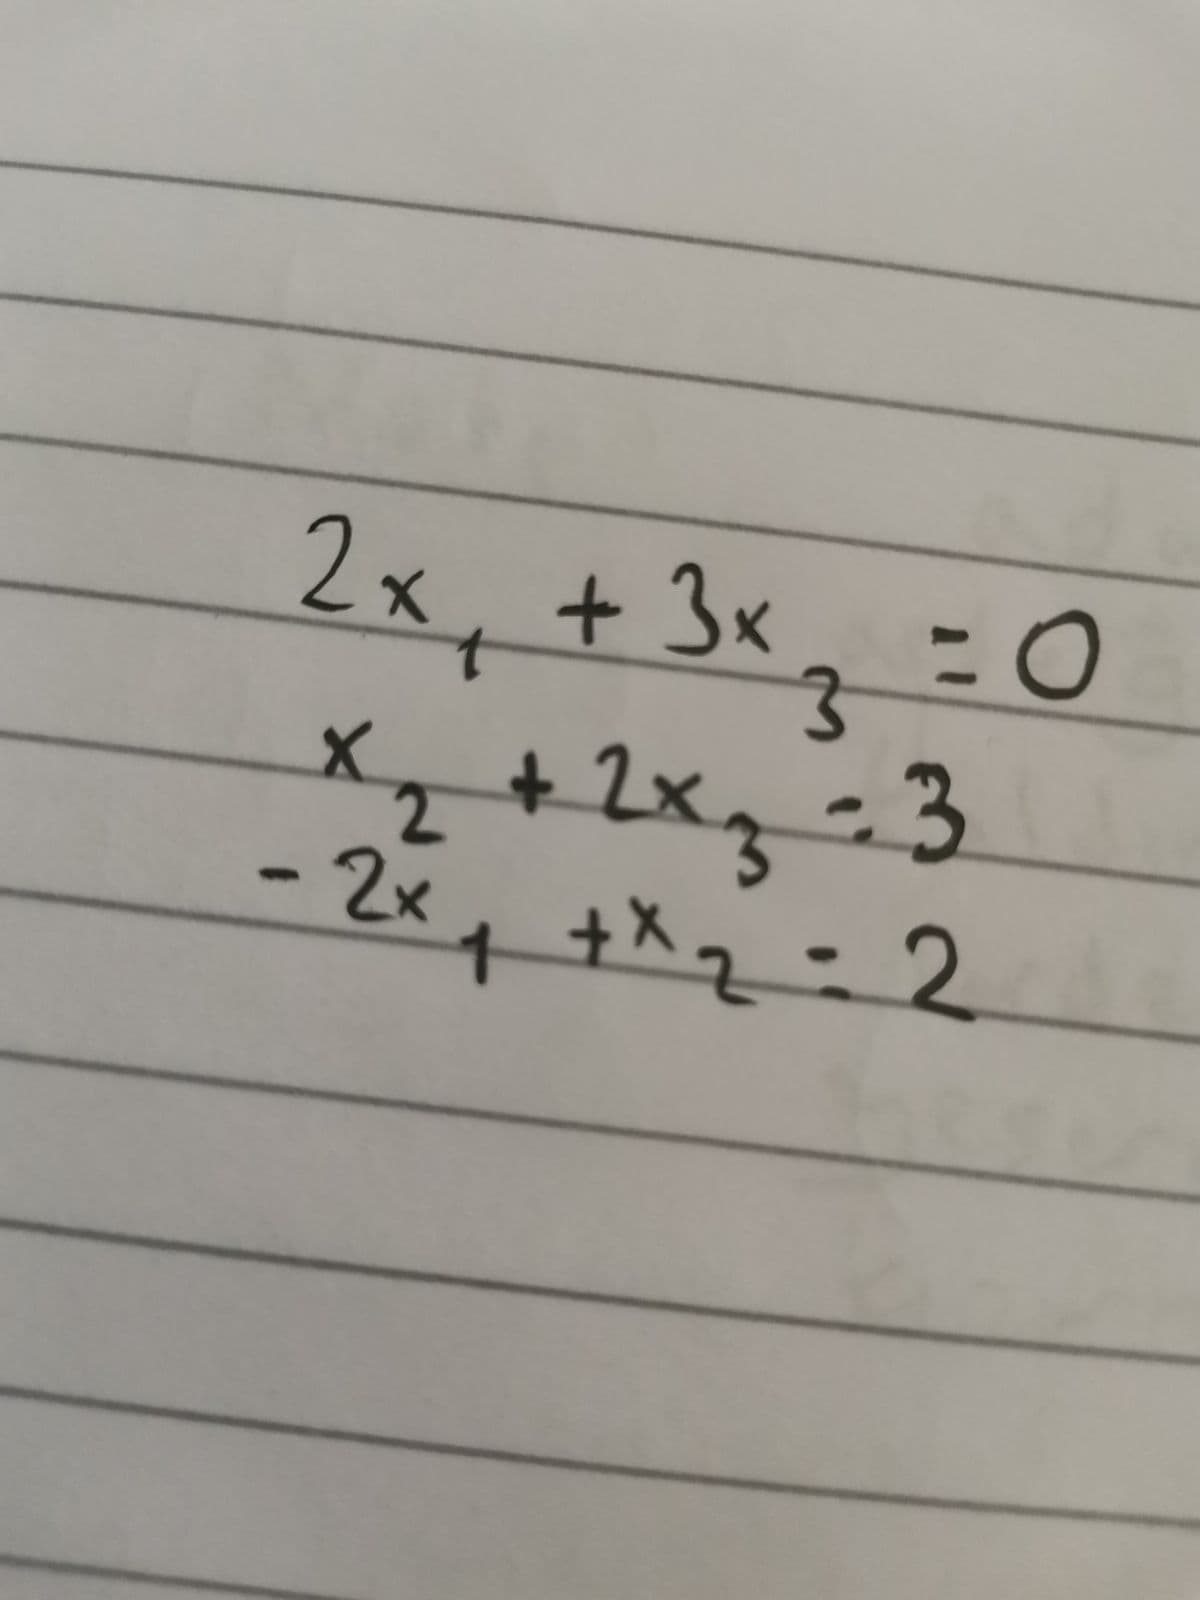 2x₁ + 3x₃ = 0
x₂ + 2x₃ = 3
- 2x₁ + x₂ = 2